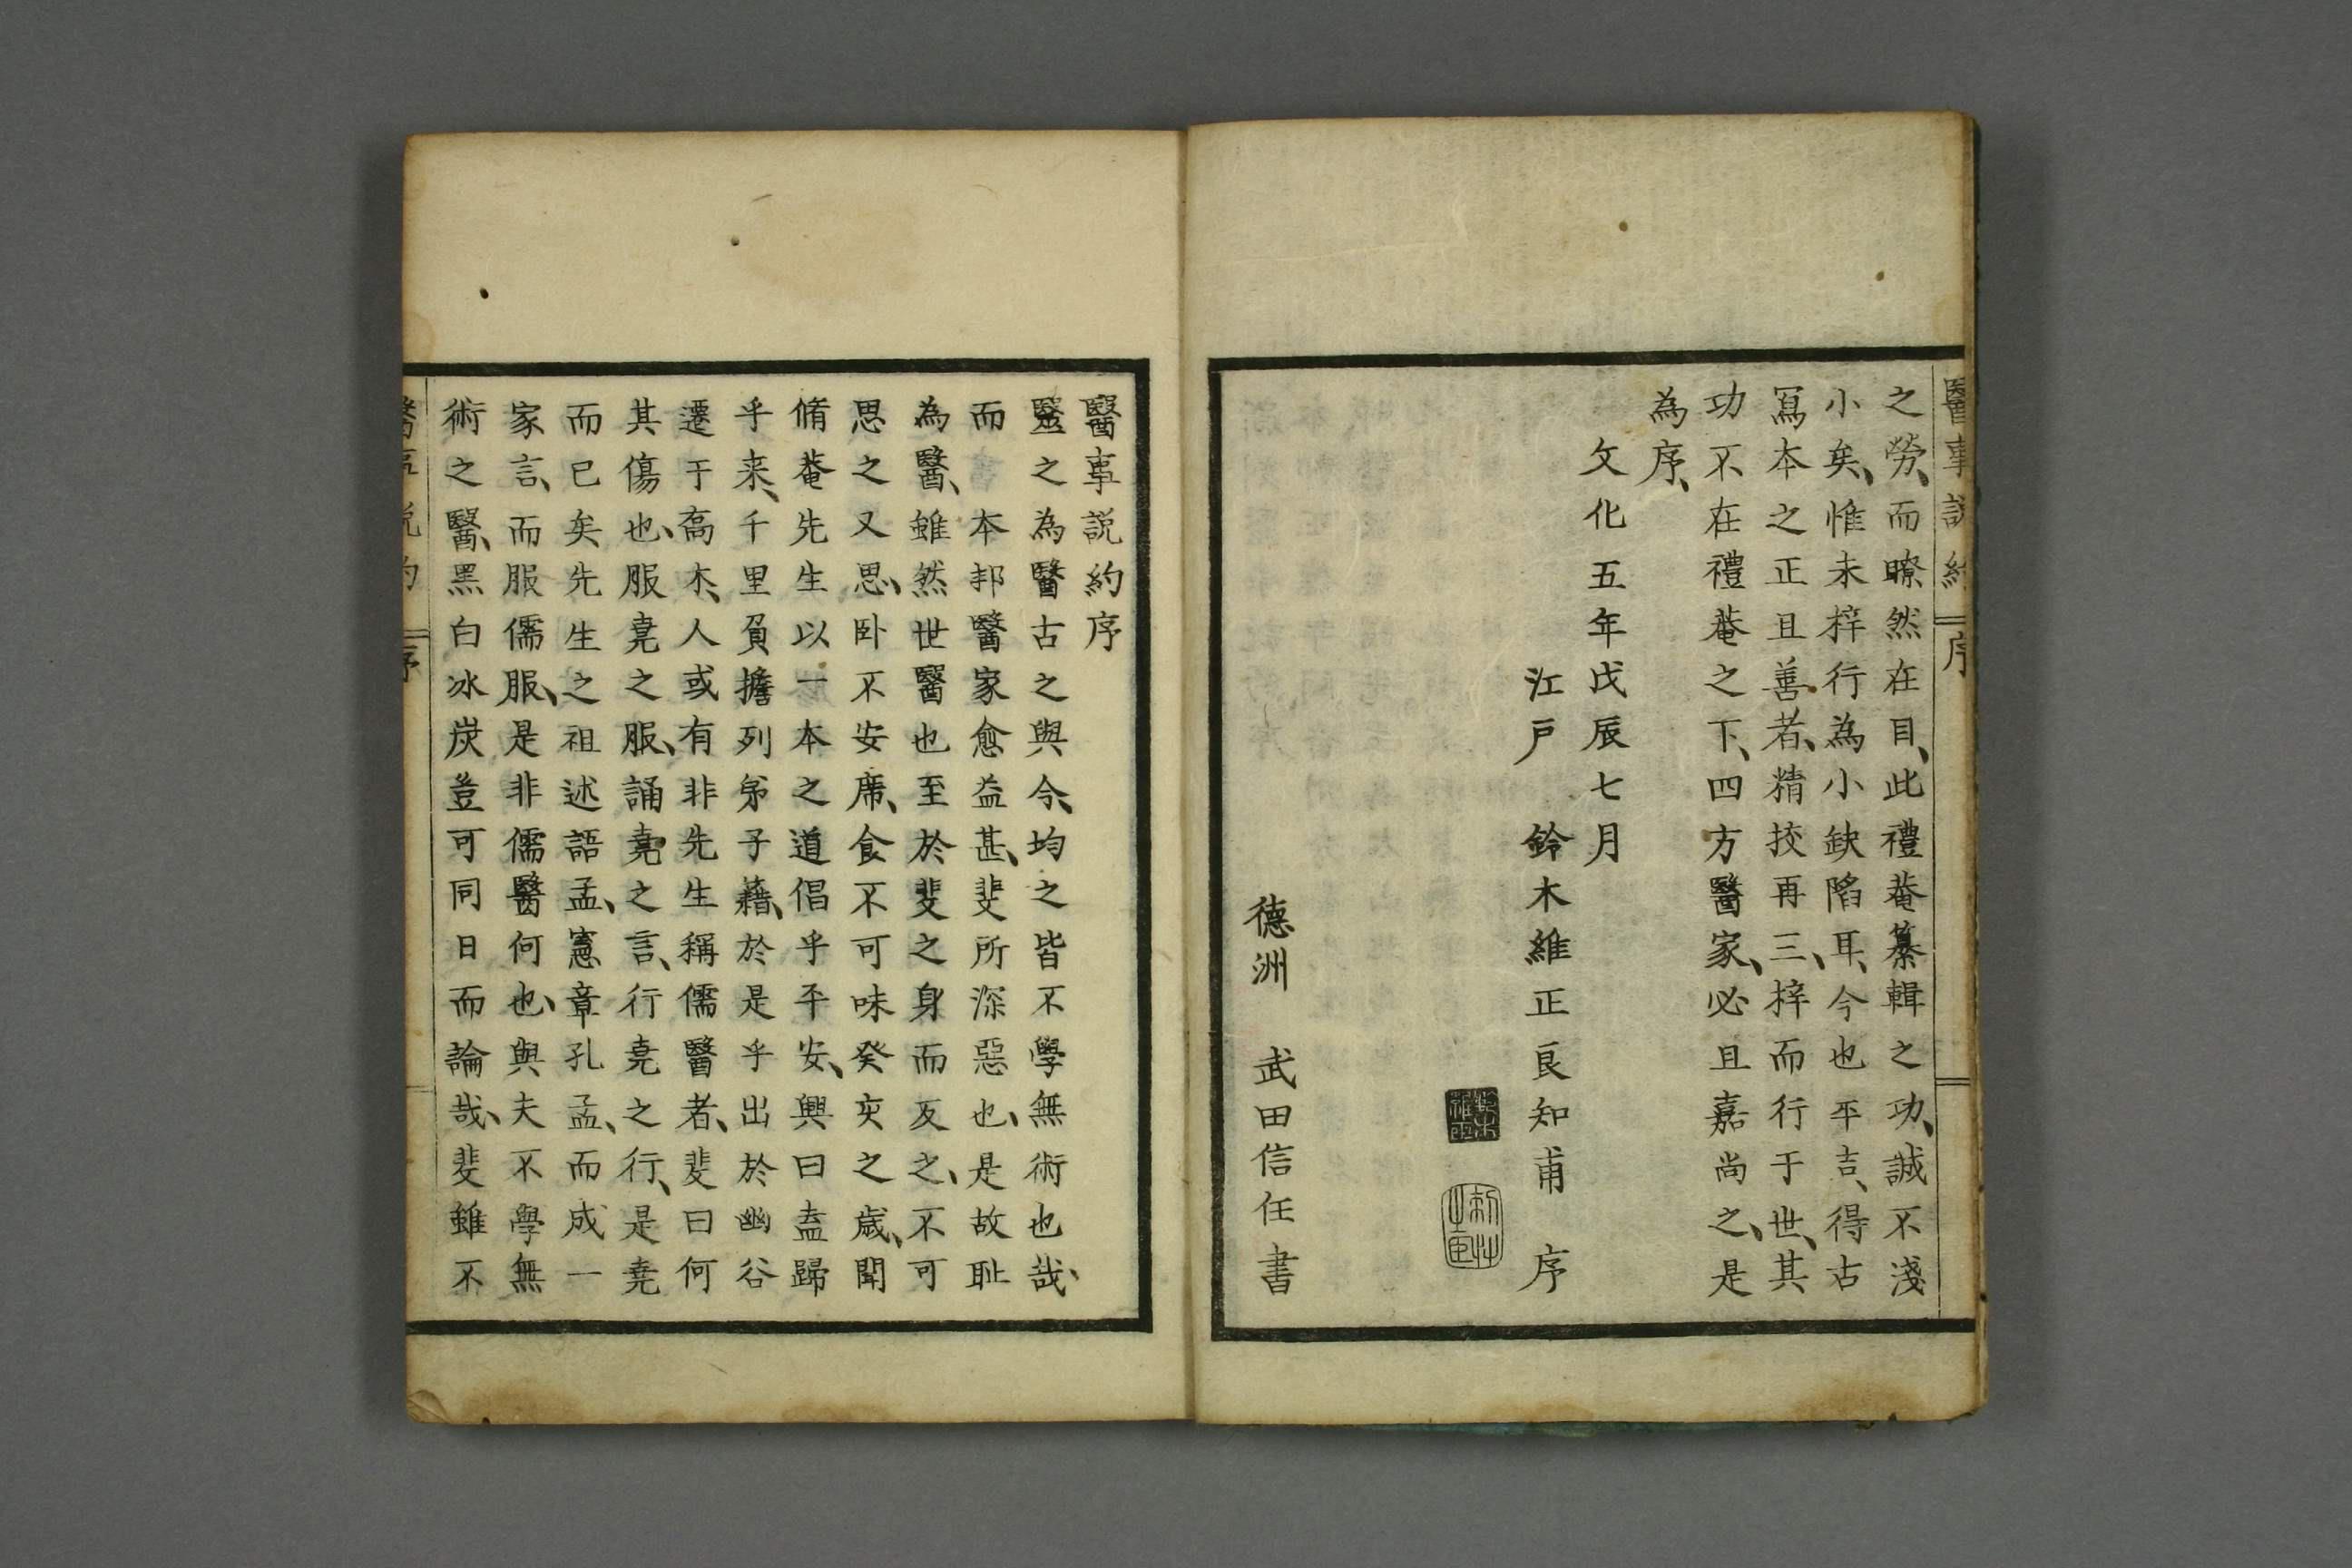 醫事說約 序
之勞、而瞭然在目、此禮菴纂輯之功、誠不淺
小矣、惟未梓行為小缺陷耳、今也平吉、得古
寫本之正且善者、精挍再三、梓而行于世、其
功不在禮菴之下、四方醫家、必且嘉尚之、是
為序、
文化五年戊辰七月
江戶 鈴木維正良知甫 序
德洲 武田信任書
醫事說約序
毉之為醫古之與今、均之皆不學無術也哉、
而 本邦醫家愈益甚、斐所深惡也、是故耻
為醫、雖然世醫也至於斐之身而反之、不可
思之又思、卧不安席、食不可味癸亥之歲、聞
脩菴先生以一本之道倡乎平安、興曰盍歸
乎来、千里負擔列弟子藉、於是乎出於幽谷
遷于高木、人或有非先生稱儒醫者、斐曰何
其傷也、服堯之服、誦堯之言、行堯之行、是堯
而已矣先生之祖述語孟、憲章孔孟、而成一
家言、而服儒服、是非儒醫何也、與夫不學無
術之醫、黑白冰炭豈可同日而論哉、斐雖不
醫事說約 序